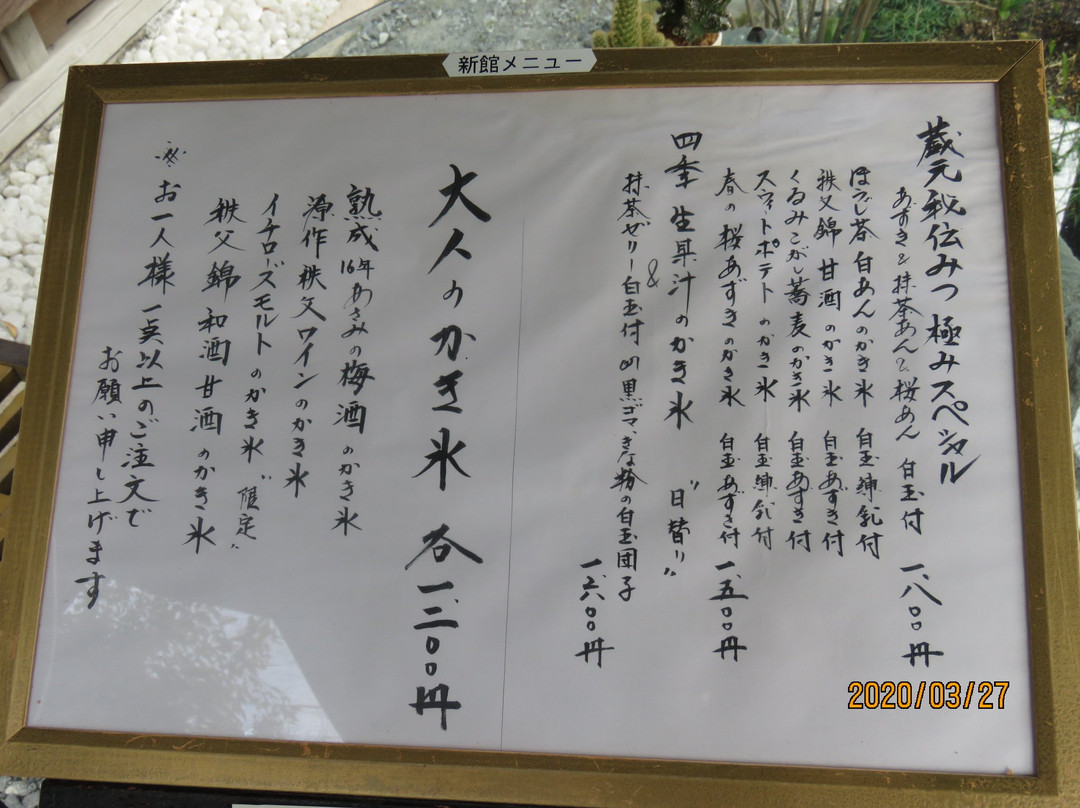 新館メニュー
蔵元秘伝みつ 極みスペシャル
あずき&抹茶あん&桜あん 白玉付 一、八〇〇円
ほうじ茶白あんのかき氷 白玉練乳付
秩父錦甘酒のかき氷 白玉あずき付
くるみこがし蕎麦のかき氷 白玉あずき付
スウィートポテトのかき氷 白玉練乳付
春の桜あずきのかき氷 白玉あずき付 一、五〇〇円
四季 生果汁のかき氷 "日替り"
&
抹茶ゼリー白玉付 or 黒ゴマ、きな粉の白玉団子
一、六〇〇円
大人のかき氷 各一、二〇〇円
熟成16年あさみの梅酒のかき氷
源作秩父ワインのかき氷
イチローズモルトのかき氷 "限定"
秩父錦 和酒甘酒のかき氷
※お一人様一点以上のご注文で
お願い申し上げます
2020/03/27